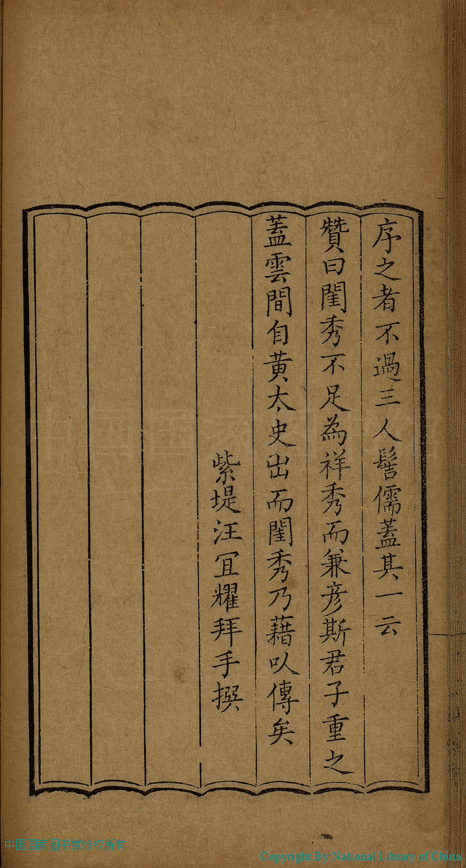 序之者不過三人髻儒蓋其一云
贊曰閨秀不足為祥秀而兼彥斯君子重之
蓋雲間自黃太史出而閨秀乃藉以傳矣
紫堤汪宜耀拜手撰
Copyright By National Library of China